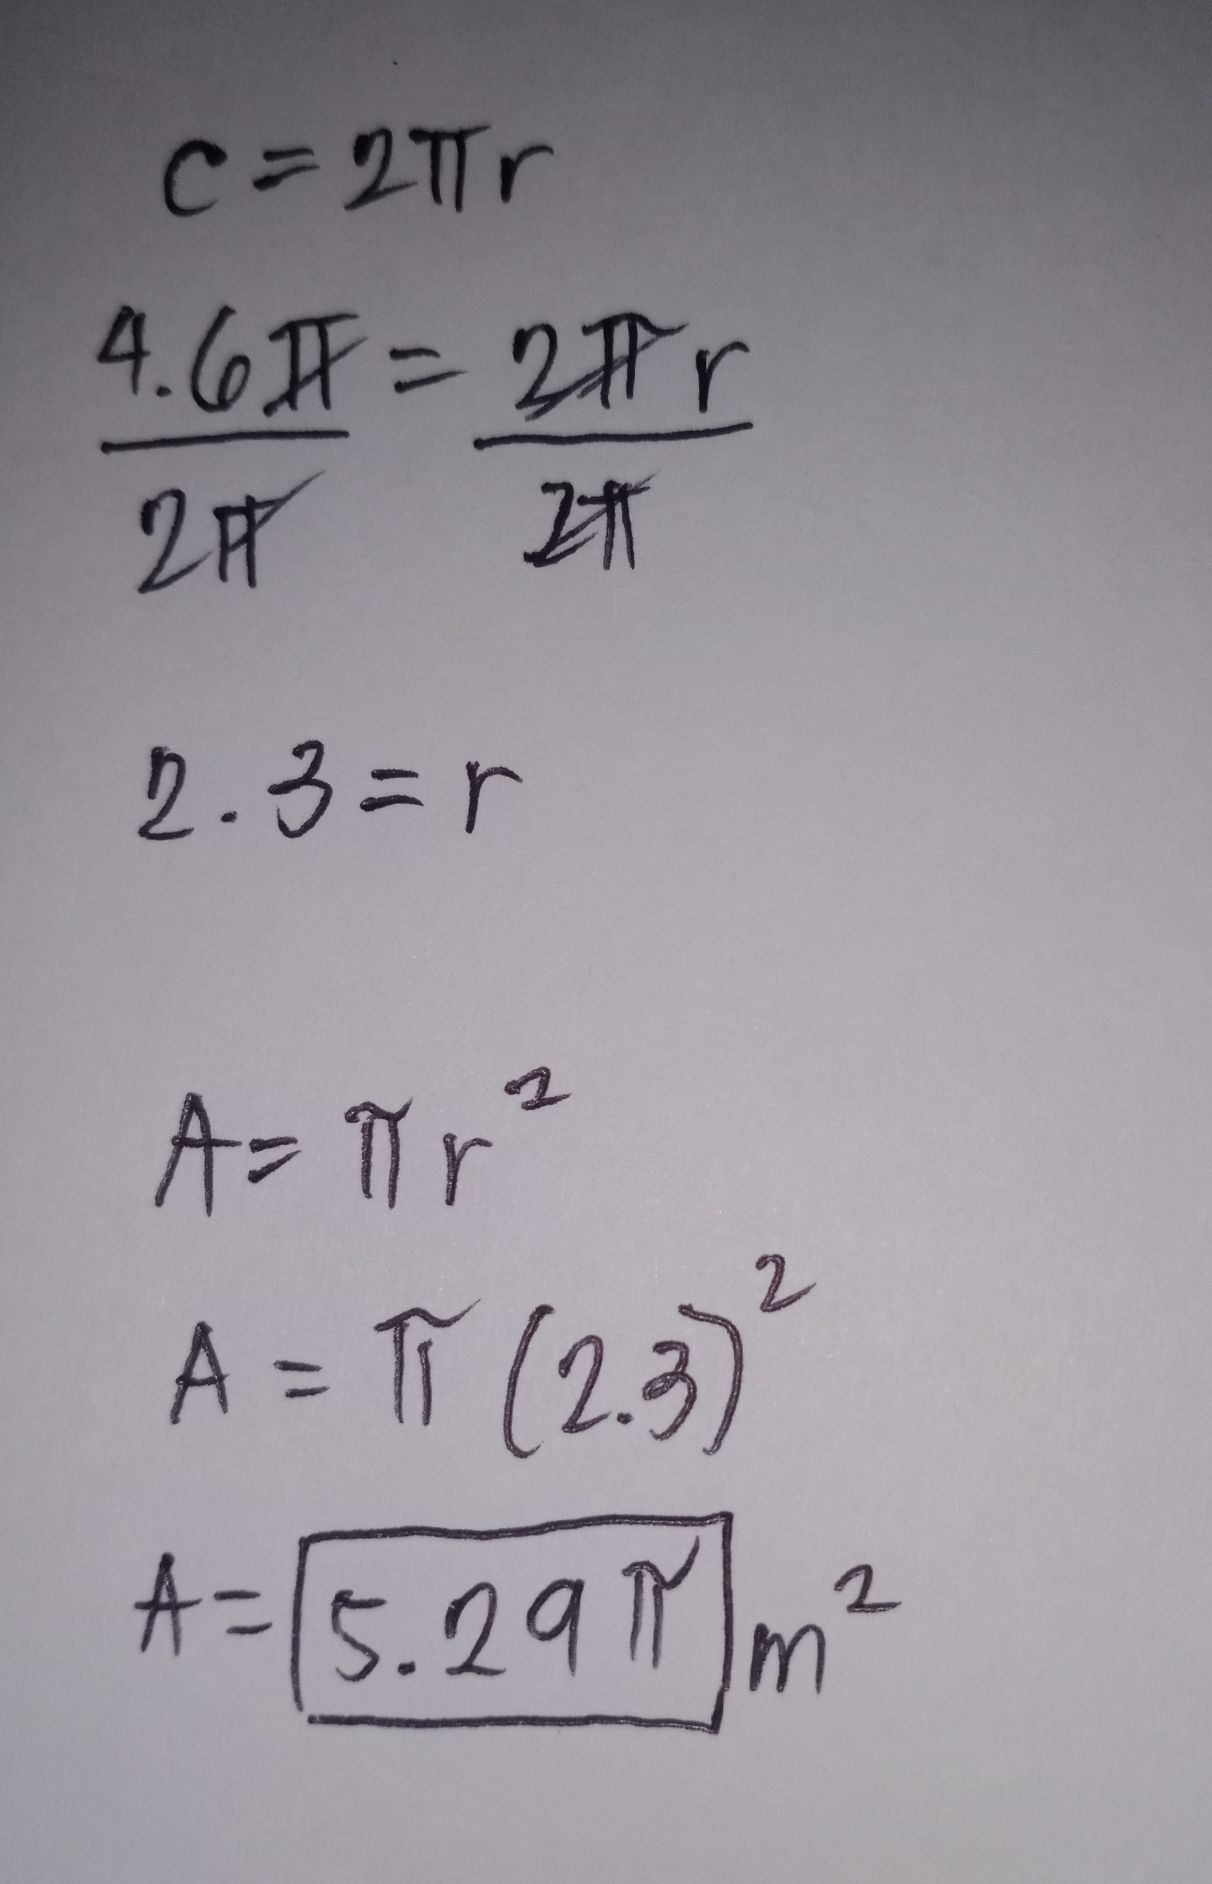 c=2πr
4.6π = 2πr
2π 2π
2.3=r
A=πr²
A=π(2.3)²
A=5.29π m²